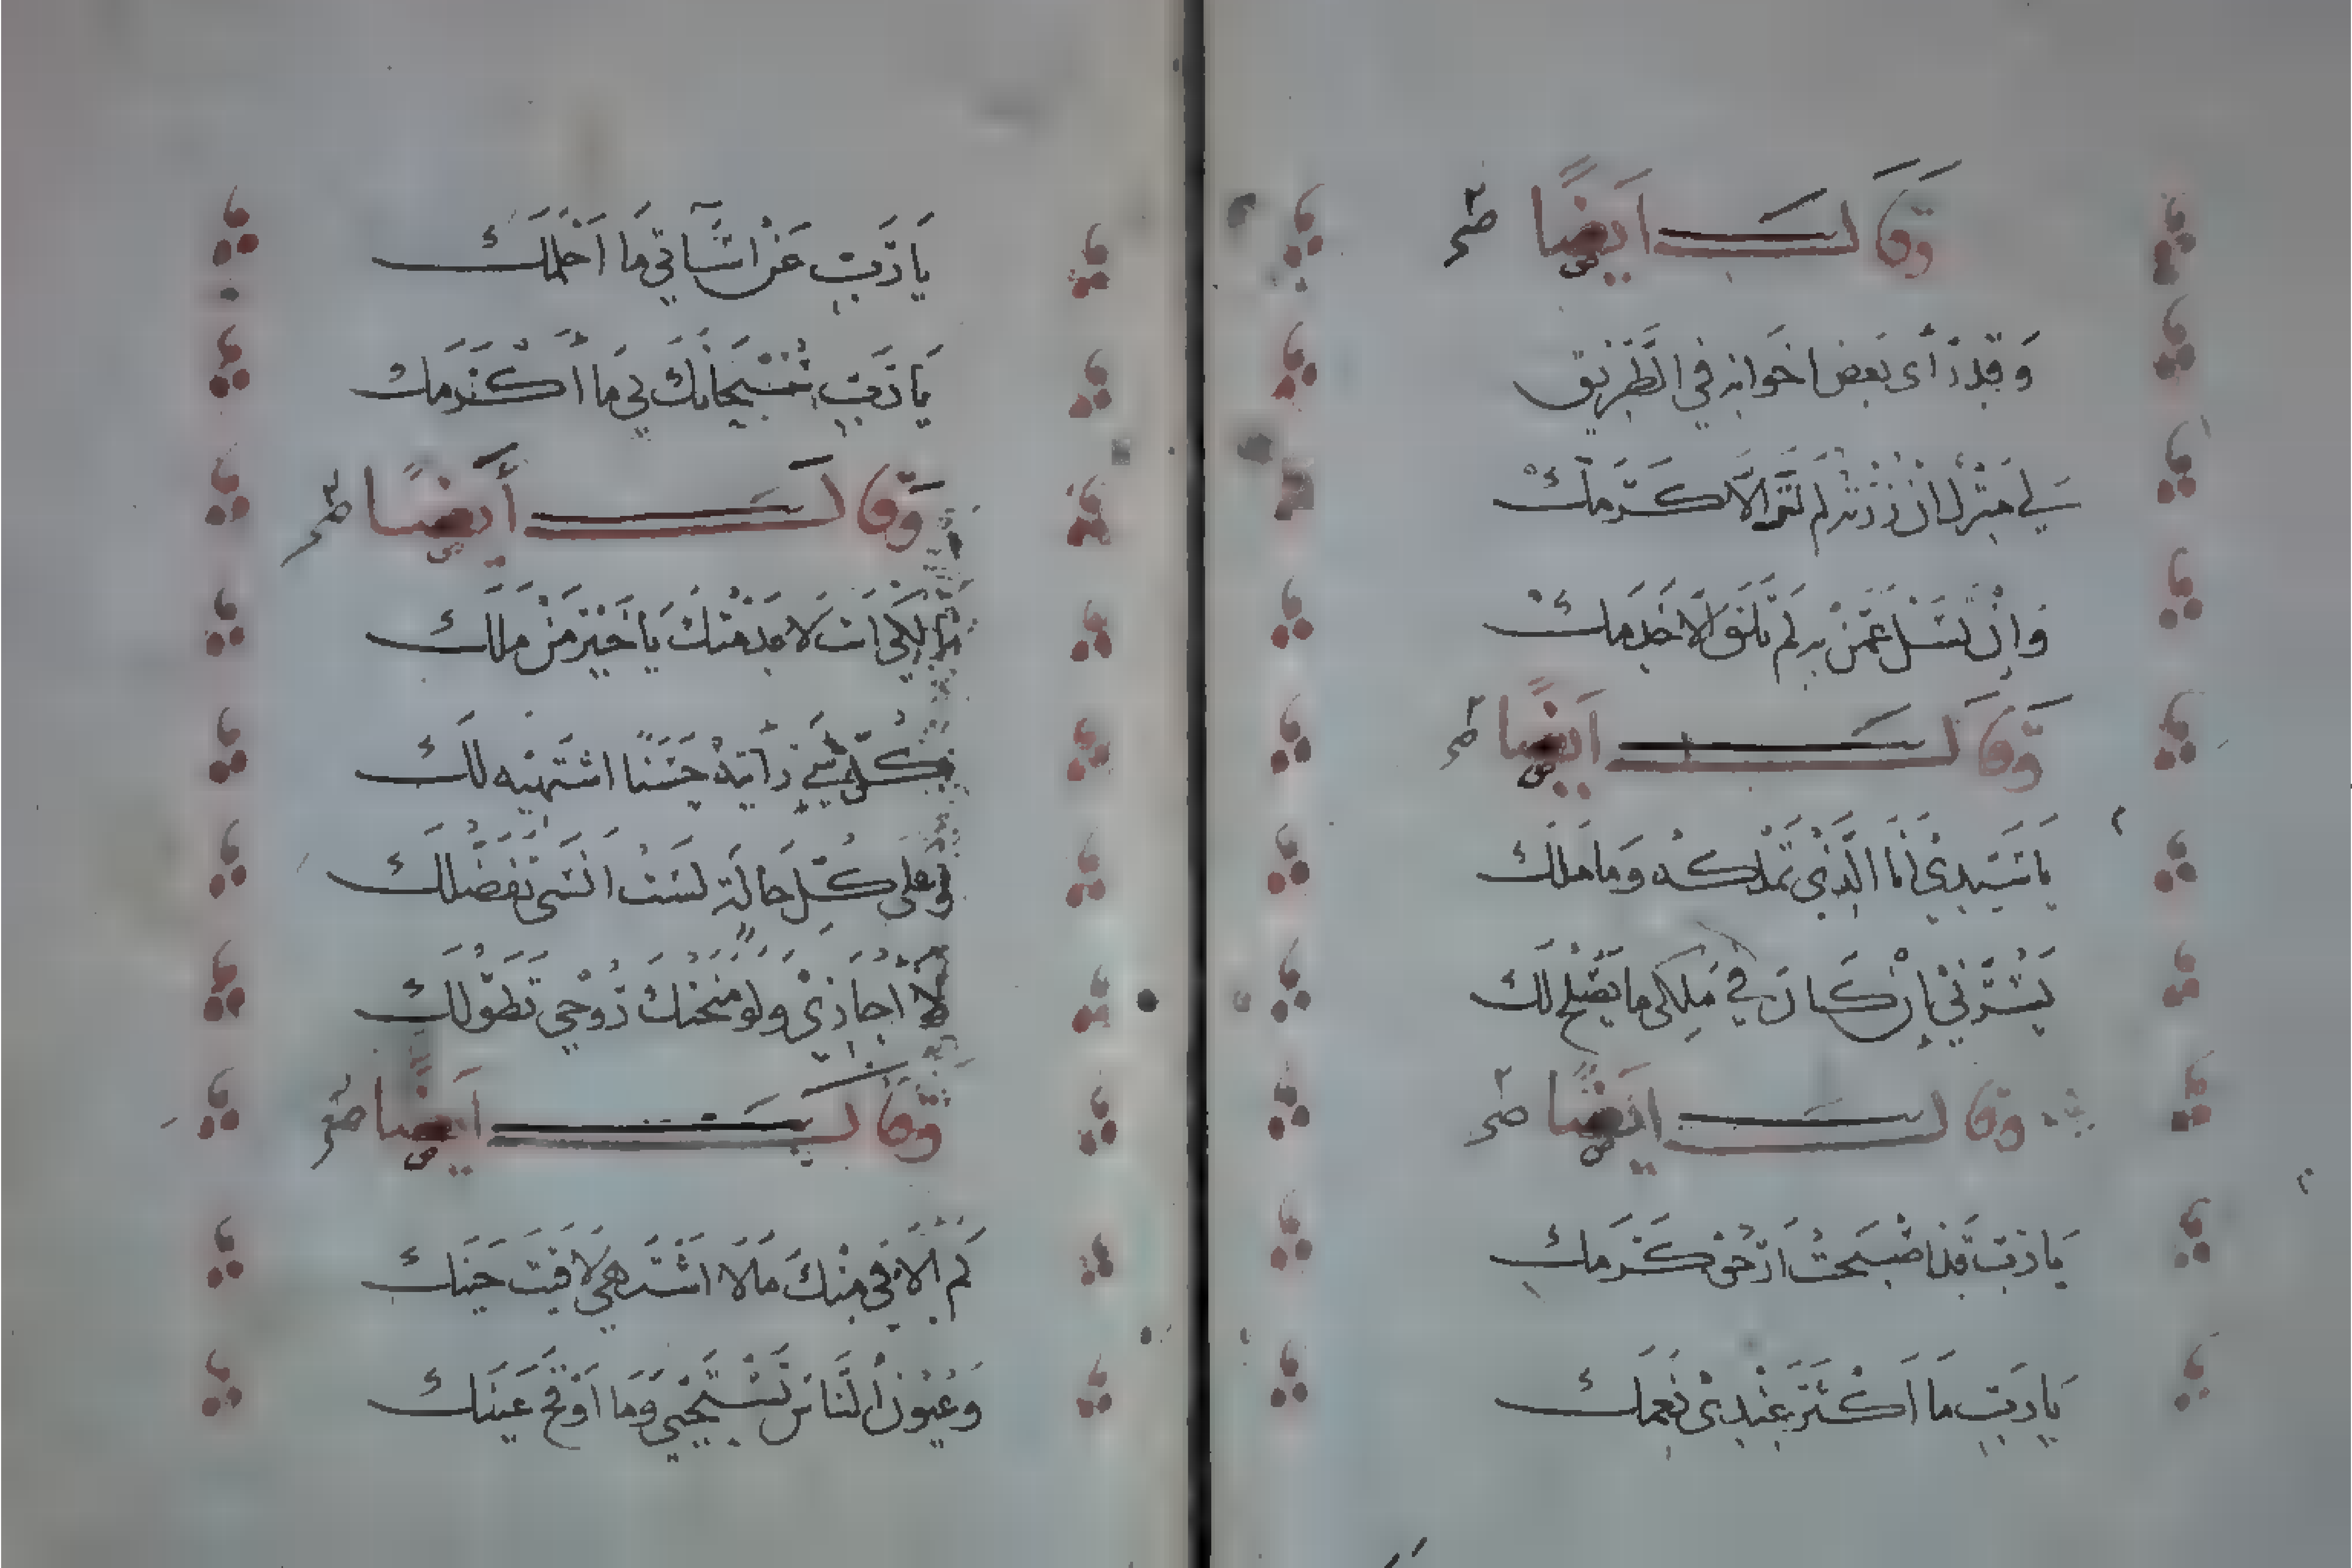 وَقَالَ اَيضًا
وَقَد رَأى بَعض اخوَانه في الطَّرِيق
لي مَنْزل ان زُرْته لم تَلق الاَّ كَرَمَكْ
وَانْ تَسَلْ عَمَّنْ بهِ لم تَلقَ الاَّ خَدَمَكْ
وَقَالَ اَيضًا
يا سَيِّدِي اَنَا الَّذِي تَمْلكُه وَمَا مَلَكْ
يَسُرُّنِيْ اِنْ كَانَ في مِلكي ما يَصْلح لَكْ
وقَالَ اَيضًا
يَا رَبّ قَد اصْبَحتُ اَرْجُو كَرَمَكْ
يَا رَبِّ مَا اَكْثَرَ عِنْدِي نِعَمَكْ
يَا رَبِّ عَنْ اسَآئتي مَا اَحْلَمَكْ
يَا رَبِّ سُبْحَانَكَ لِي مَا اَكْرَمَكْ
وَقَالَ أَيضًا
اَنتَ لا عَدمْتكَ يَا خَيْرَ مَنْ مَلَكْ
كُلّ شَيْءٍ رَأَيْتهُ حَسَنًا اشتَهيْه لَكْ
وَعَلى كُلِّ حَالَةٍ لَسْتُ اَنْسَى تَفَضُّلَكْ
لا اُجَازِيْ وَلَو مَنَحْتُكَ رُوْحِي تَطَوُّلَكْ
وَقَالَ اَيضًا
لَم اُلاَقي مِنْكَ مَا لاَ اَشْتَهي لاَقَيتَ حَيْنَكْ
وَعُيُوْنُ النَّاسِ تَسْتَحْيي وَمَا اَوْقَحَ عَيْنَكْ